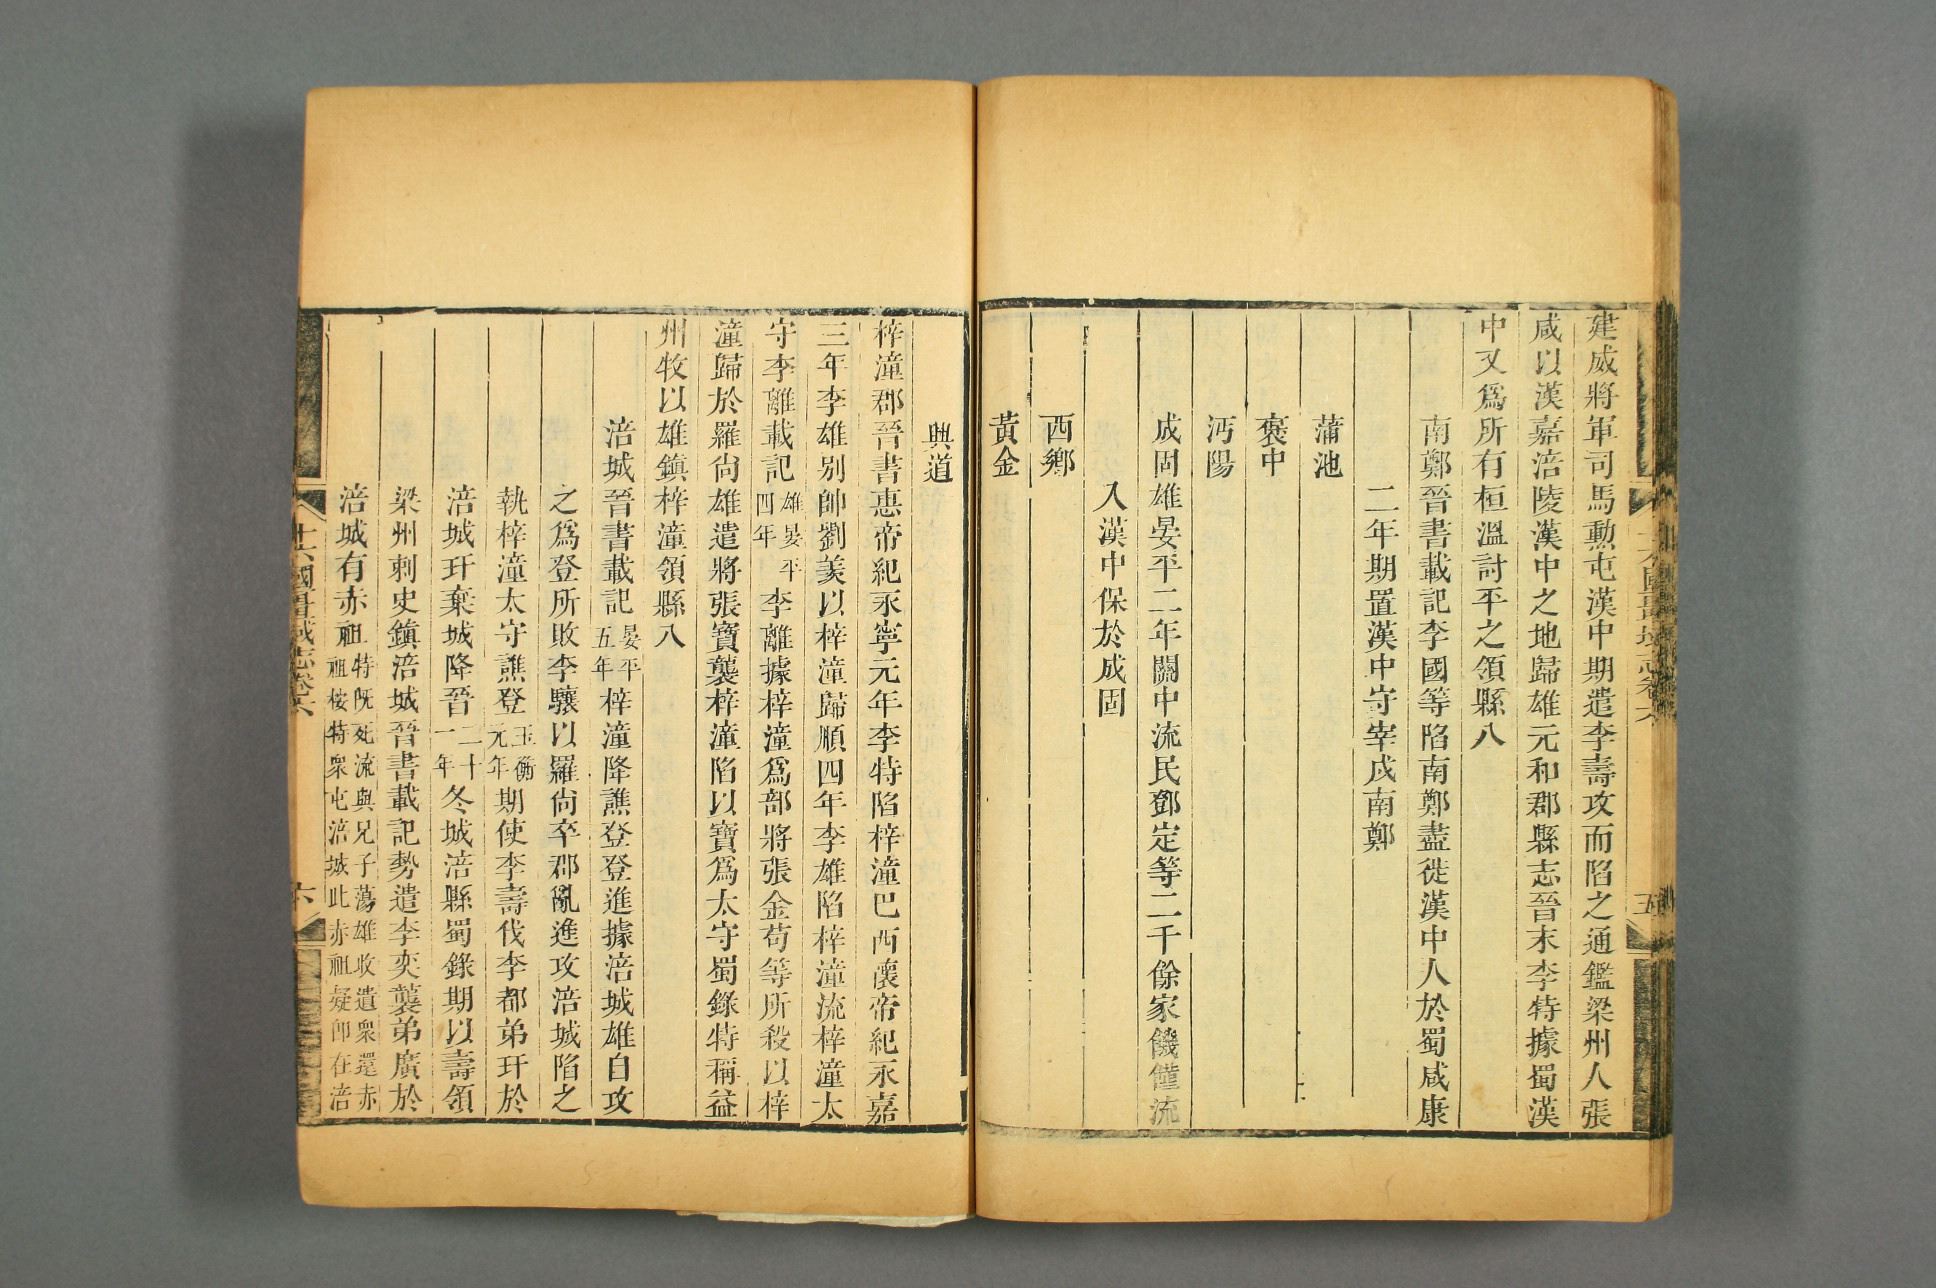 建威將軍司馬勲屯漢中期遣李壽攻而陷之通鑑梁州人張
咸以漢嘉涪陵漢中之地歸雄元和郡縣志晉末李特據蜀漢
中又爲所有桓溫討平之領縣八
南鄭晉書載記李國等陷南鄭盡徙漢中人於蜀咸康
二年期置漢中守宰戍南鄭
蒲池
褒中
沔陽
成固雄晏平二年關中流民鄧定等二千餘家饑僅流
入漢中保於成固
西鄉
黃金
興道
梓潼郡晉書惠帝紀永寧元年李特陷梓潼巴西懷帝紀永嘉
三年李雄別帥劉羕以梓潼歸順四年李雄陷梓潼流梓潼太
守李離載記雄晏平四年李離據梓潼爲部將張金苟等所殺以梓
潼歸於羅尙雄遣將張寶襲梓潼陷以寶爲太守蜀錄特稱益
州牧以雄鎭梓潼領縣八
涪城晉書載記晏平五年梓潼降譙登登進據涪城雄自攻
之爲登所敗李驤以羅尙卒郡亂進攻涪城陷之
執梓潼太守譙登玉衡元年期使李壽伐李都弟玝於
涪城玝棄城降晉二十一年冬城涪縣蜀錄期以壽領
梁州刺史鎭涪城晉書載記勢遣李奕襲弟廣於
涪城有赤祖特旣死流與兄子蕩雄收遺衆還赤
祖桉特衆屯涪城此赤祖疑卽在涪
十六國疆域志卷六
六
五